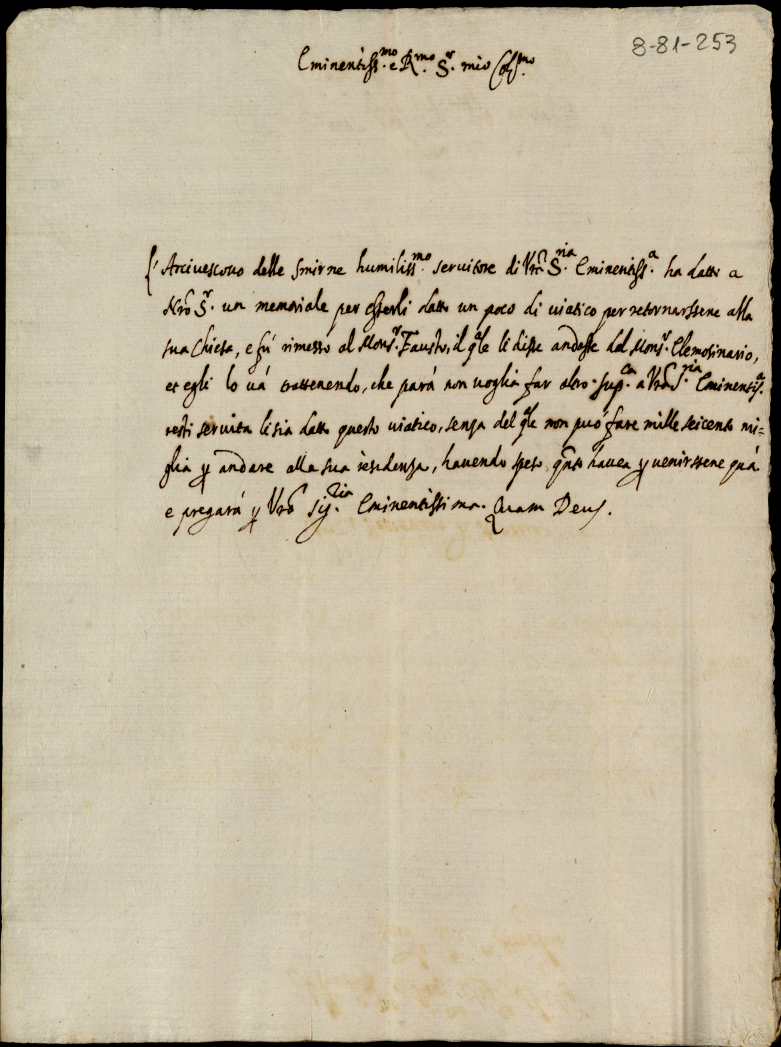 8-81-253
Eminentiss.mo e R.mo S.r mio Col.mo
L'Arcivescovo delle Smirne humiliss.mo servitore di Vrã S.ria Eminentiss.a ha datto a
Nrõ S.r un memoriale per esserli datto un poco di viatico per retornarssene alla
sua Chiesa, e fú rimesso al Mons.r Fausto, il q.le li disse andasse dal Mons.r Elemosinario,
et egli lo vá trattenendo, che pará non voglia far altro. sup.ca a Vrã S.ria Eminentiss.a
resti servita li sia datto questo viatico, senza del q.le non puó fare mille seicento mi=
glia p andare alla sua residenza, havendo speso qnto havea p venirssene quá
e pregará p Vrã Sig.ria Eminentissima. Quam Deus.